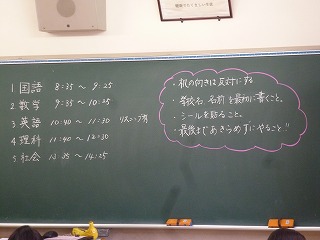 1 国語 8:35 ～ 9:25
2 数学 9:35 ～ 10:25
3 英語 10:40 ～ 11:30 リスニング有
4 理科 11:40 ～ 12:30
5 社会 13:35 ～ 14:25
・机の向きは反対にする
・学校名 名前を最初に書くこと。
・シールを貼ること。
・最後まであきらめずにやること!!